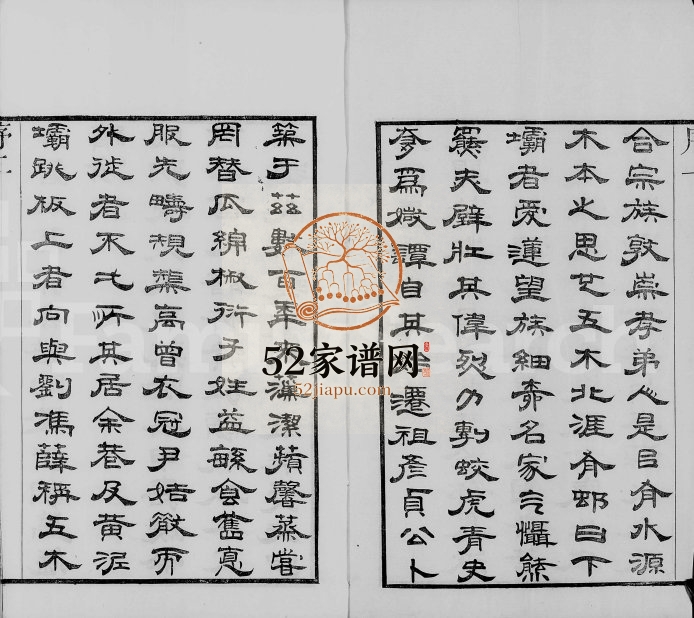 合宗族敦崇孝弟心是㠯有水源
木本之思也五木北涯有邨曰下
壩者爰蓮望族細名家气懾熊
羆夫壁壯其偉烈力剸蛟虎青史
爲媺譚自其始遷祖彥貞公卜
築于茲數百年來藻潔蘋馨蒸嘗
罔替瓜綿椒衍子姓益緐食舊悳
服先疇規槼高曾衣冠尹姞嶶而
外徙者不一所其居余巷及黃泥
壩跳板上者向與劉馮薛稱五木
序二
52家谱网
52jiapu.com